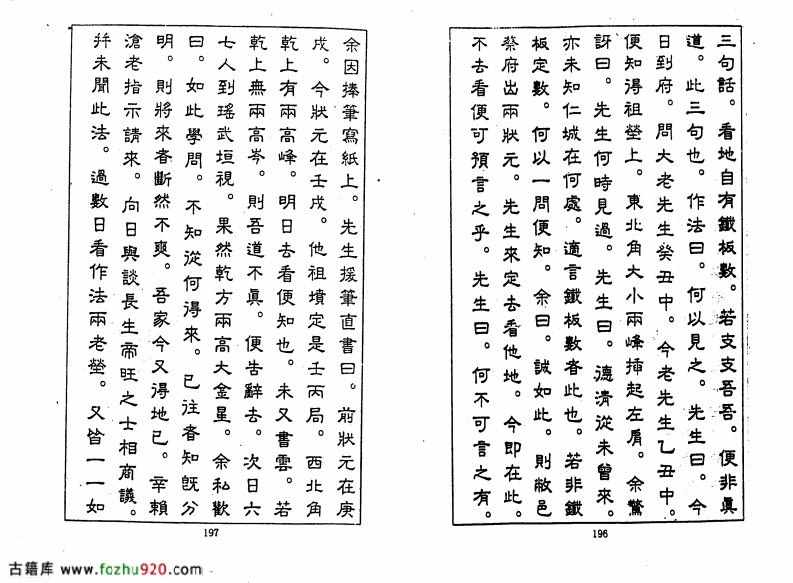 三句話。看地自有鐵板數。若支支吾吾。便非眞
道。此三句也。作法曰。何以見之。先生曰。今
日到府。問大老先生癸丑中。今老先生乙丑中。
便知得祖塋上。東北角大小兩峰揷起左肩。余驚
訝曰。先生何時見過。先生曰。德清從未曾來。
亦未知仁城在何處。適言鐵板數者此也。若非鐵
板定數。何以一問便知。余曰。誠如此。則敝邑
蔡府出兩狀元。先生來定去看他地。今即在此。
不去看便可預言之乎。先生曰。何不可言之有。
196
余因捧筆寫紙上。先生援筆直書曰。前狀元在庚
戌。今狀元在壬戌。他祖墳定是壬丙局。西北角
乾上有兩高峰。明日去看便知也。未又書雲。若
乾上無兩高岑。則吾道不眞。便告辭去。次日六
七人到瑤武垣視。果然乾方兩高大金星。余私歎
曰。如此學問。不知從何得來。已往者知旣分
明。則將來者斷然不爽。吾家今又得地已。幸賴
滄老指示請來。向日與談長生帝旺之士相商議。
幷未聞此法。過數日看作法兩老塋。又皆一一如
197
古籍库 www.fozhu920.com